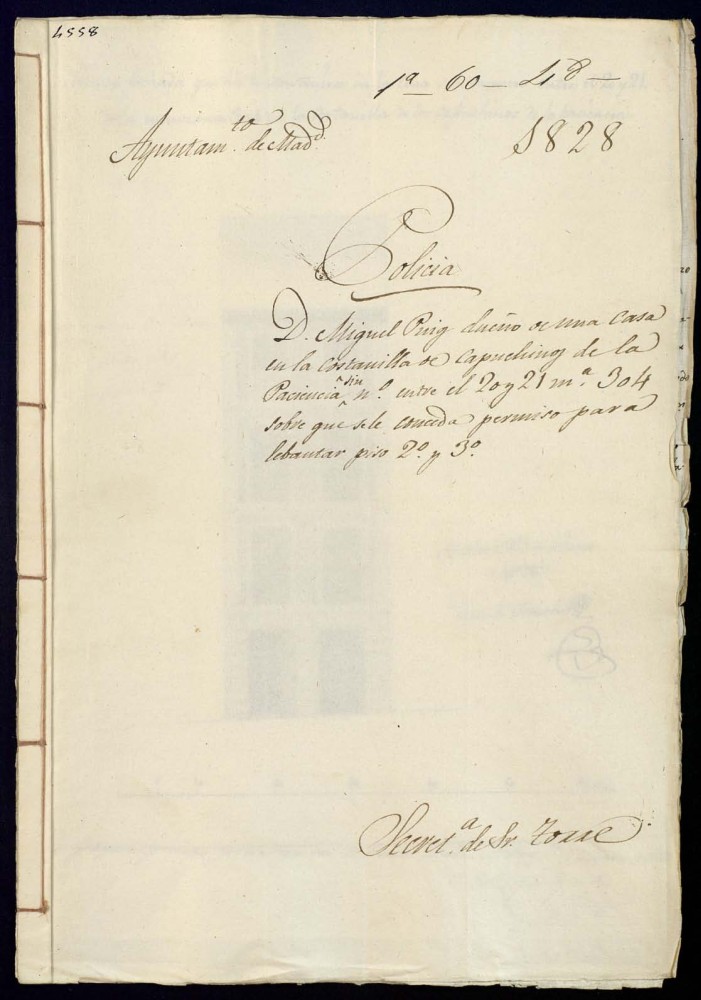 4558
1ª 60 — 48 —
Ayuntam.to de Mad.d
1828
Policia
D. Miguel Puig dueño de una casa
en la costanilla de Capuchinos de la
Paciencia sin n.º entre el 20 y 21 m.ª 304
sobre que se le conceda permiso para
lebantar piso 2.º y 3.º
Secret.ª de Sr. Torre